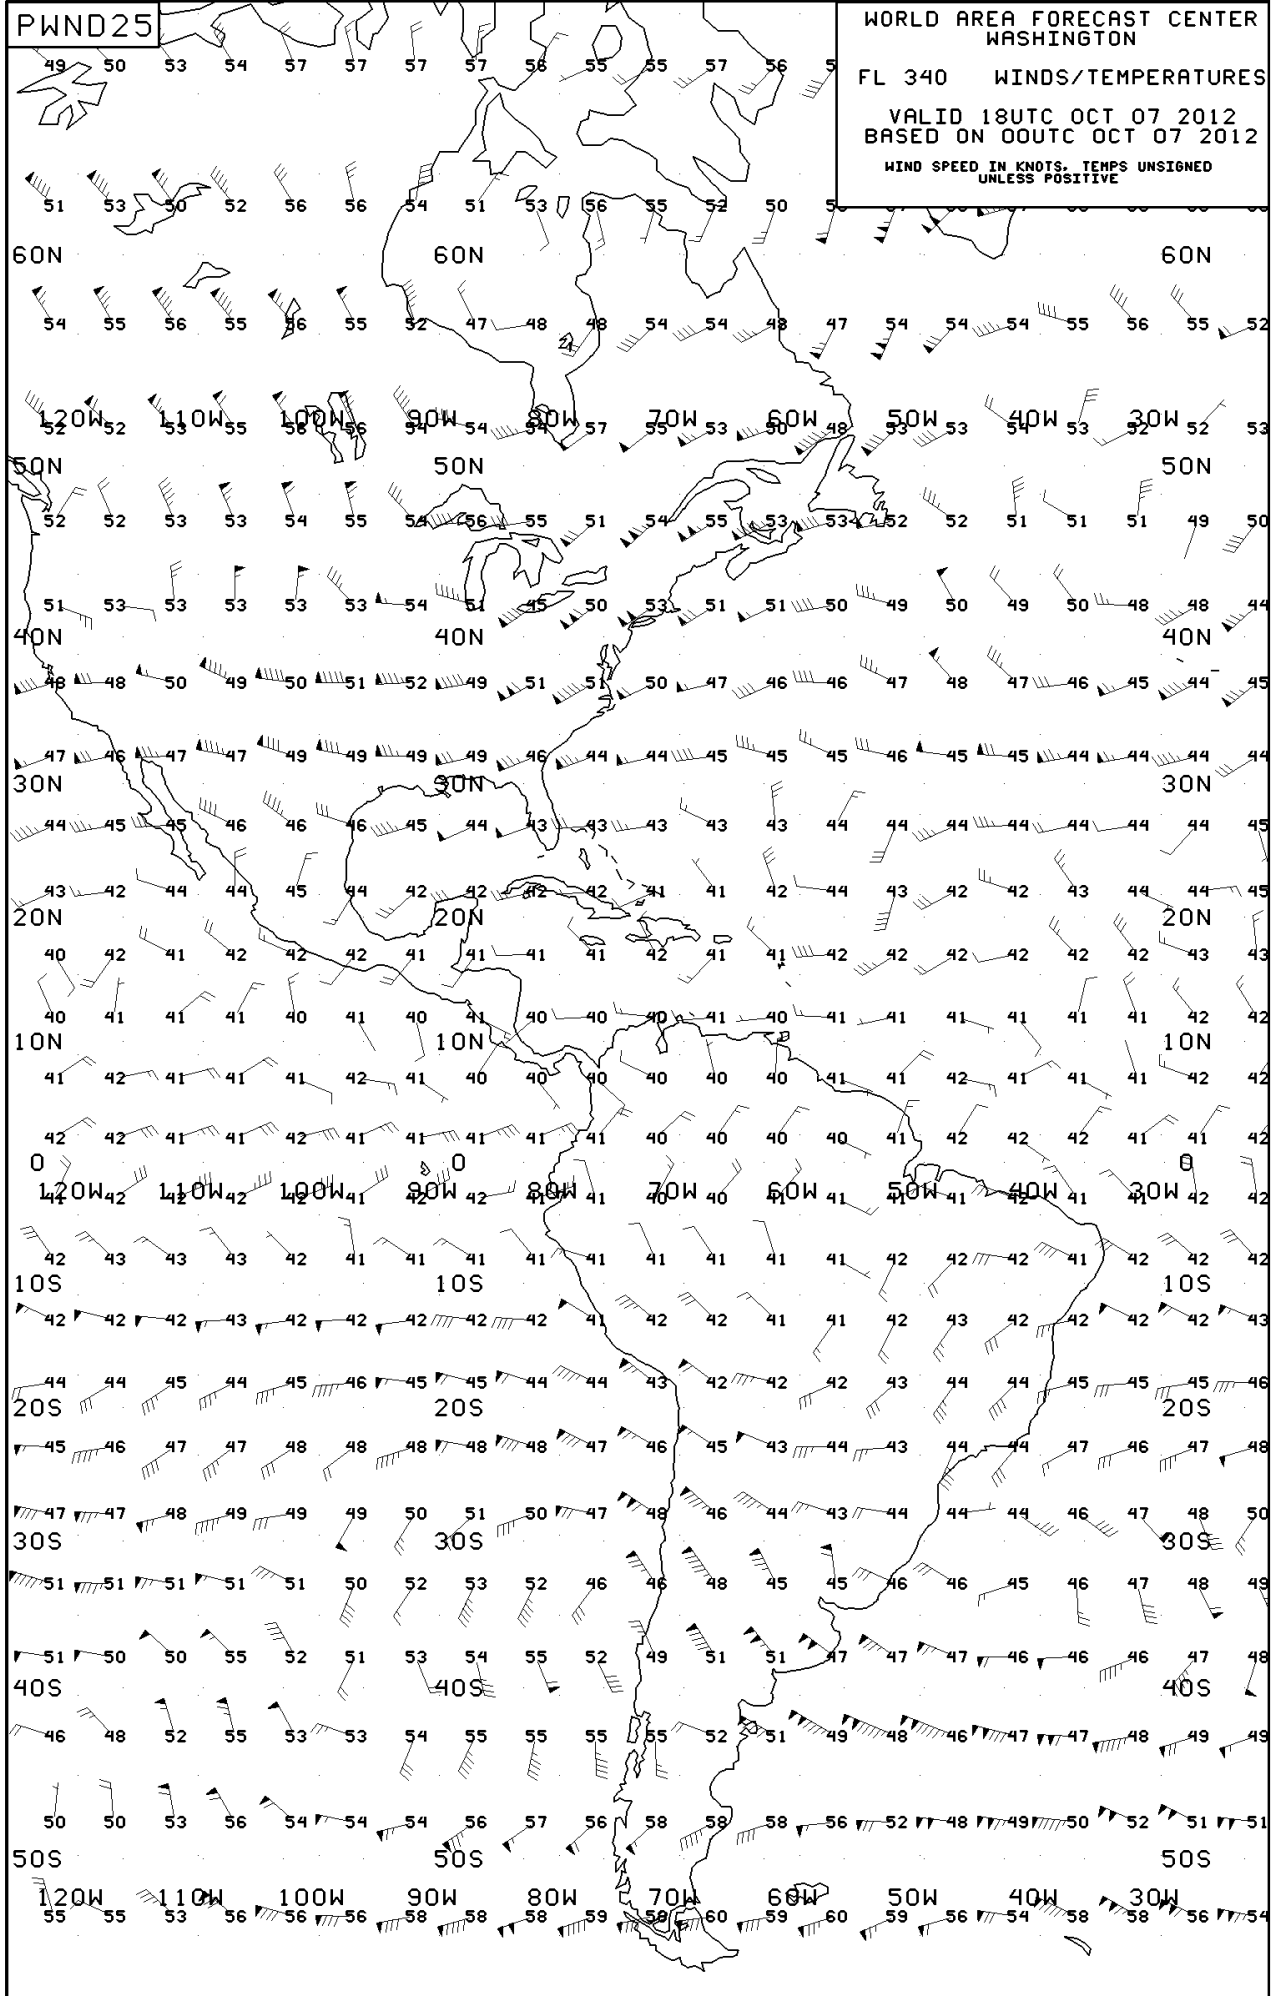 PWND25
WORLD AREA FORECAST CENTER
WASHINGTON
FL 340 WINDS/TEMPERATURES
VALID 18UTC OCT 07 2012
BASED ON 00UTC OCT 07 2012
WIND SPEED IN KNOTS, TEMPS UNSIGNED
UNLESS POSITIVE
49 50 53 54 57 57 57 57 56 55 55 57 56
51 53 50 52 56 56 54 51 53 56 55 52 50
60N 60N 60N
54 55 56 55 56 55 52 47 48 48 54 54 48 47 54 54 54 55 56 55 52
120W 110W 100W 90W 80W 70W 60W 50W 40W 30W
52 52 53 55 56 56 54 54 54 57 55 53 50 48 53 53 54 53 52 52 53
50N 50N 50N
52 52 53 53 54 55 54 56 55 51 54 55 53 53 52 52 51 51 51 49 50
51 53 53 53 53 53 54 51 45 50 53 51 51 50 49 50 49 50 48 48 44
40N 40N 40N
48 48 50 49 50 51 52 49 51 51 50 47 46 46 47 48 47 46 45 44 45
47 46 47 47 49 49 49 49 46 44 44 45 45 45 46 45 45 44 44 44 44
30N 30N 30N
44 45 45 46 46 46 45 44 43 43 43 43 43 44 44 44 44 44 44 44 45
43 42 44 44 45 44 42 42 42 42 41 41 42 44 43 42 42 43 44 44 45
20N 20N 20N
40 42 41 42 42 42 41 41 41 41 42 41 41 42 42 42 42 42 42 43 43
40 41 41 41 40 41 40 41 40 40 40 41 40 41 41 41 41 41 41 42 42
10N 10N 10N
41 42 41 41 41 42 41 40 40 40 40 40 40 41 41 42 41 41 41 42 42
42 42 41 41 42 41 41 41 41 41 40 40 40 40 41 42 42 42 41 41 42
0 0 0
120W 110W 100W 90W 80W 70W 60W 50W 40W 30W
41 42 42 42 42 41 42 42 41 41 40 40 41 41 41 41 42 41 41 42 42
42 43 43 43 42 41 41 41 41 41 41 41 41 41 42 42 42 41 42 42 42
10S 10S 10S
42 42 42 43 42 42 42 42 42 41 42 42 41 41 42 43 42 42 42 42 43
44 44 45 44 45 46 45 45 44 44 43 42 42 42 43 44 44 45 45 45 46
20S 20S 20S
45 46 47 47 48 48 48 48 48 47 46 45 43 44 43 44 44 47 46 47 48
47 47 48 49 49 49 50 51 50 47 48 46 44 43 44 44 44 46 47 48 50
30S 30S 30S
51 51 51 51 51 50 52 53 52 46 46 48 45 45 46 46 45 46 47 48 49
51 50 50 55 52 51 53 54 55 52 49 51 51 47 47 47 46 46 46 47 48
40S 40S 40S
46 48 52 55 53 53 54 55 55 55 55 52 51 49 48 46 47 47 48 49 49
50 50 53 56 54 54 54 56 57 56 58 58 58 60 52 48 49 50 52 51 51
50S 50S 50S
120W 110W 100W 90W 80W 70W 60W 50W 40W 30W
55 55 53 56 56 56 58 58 58 59 59 60 59 60 59 56 54 58 58 56 54